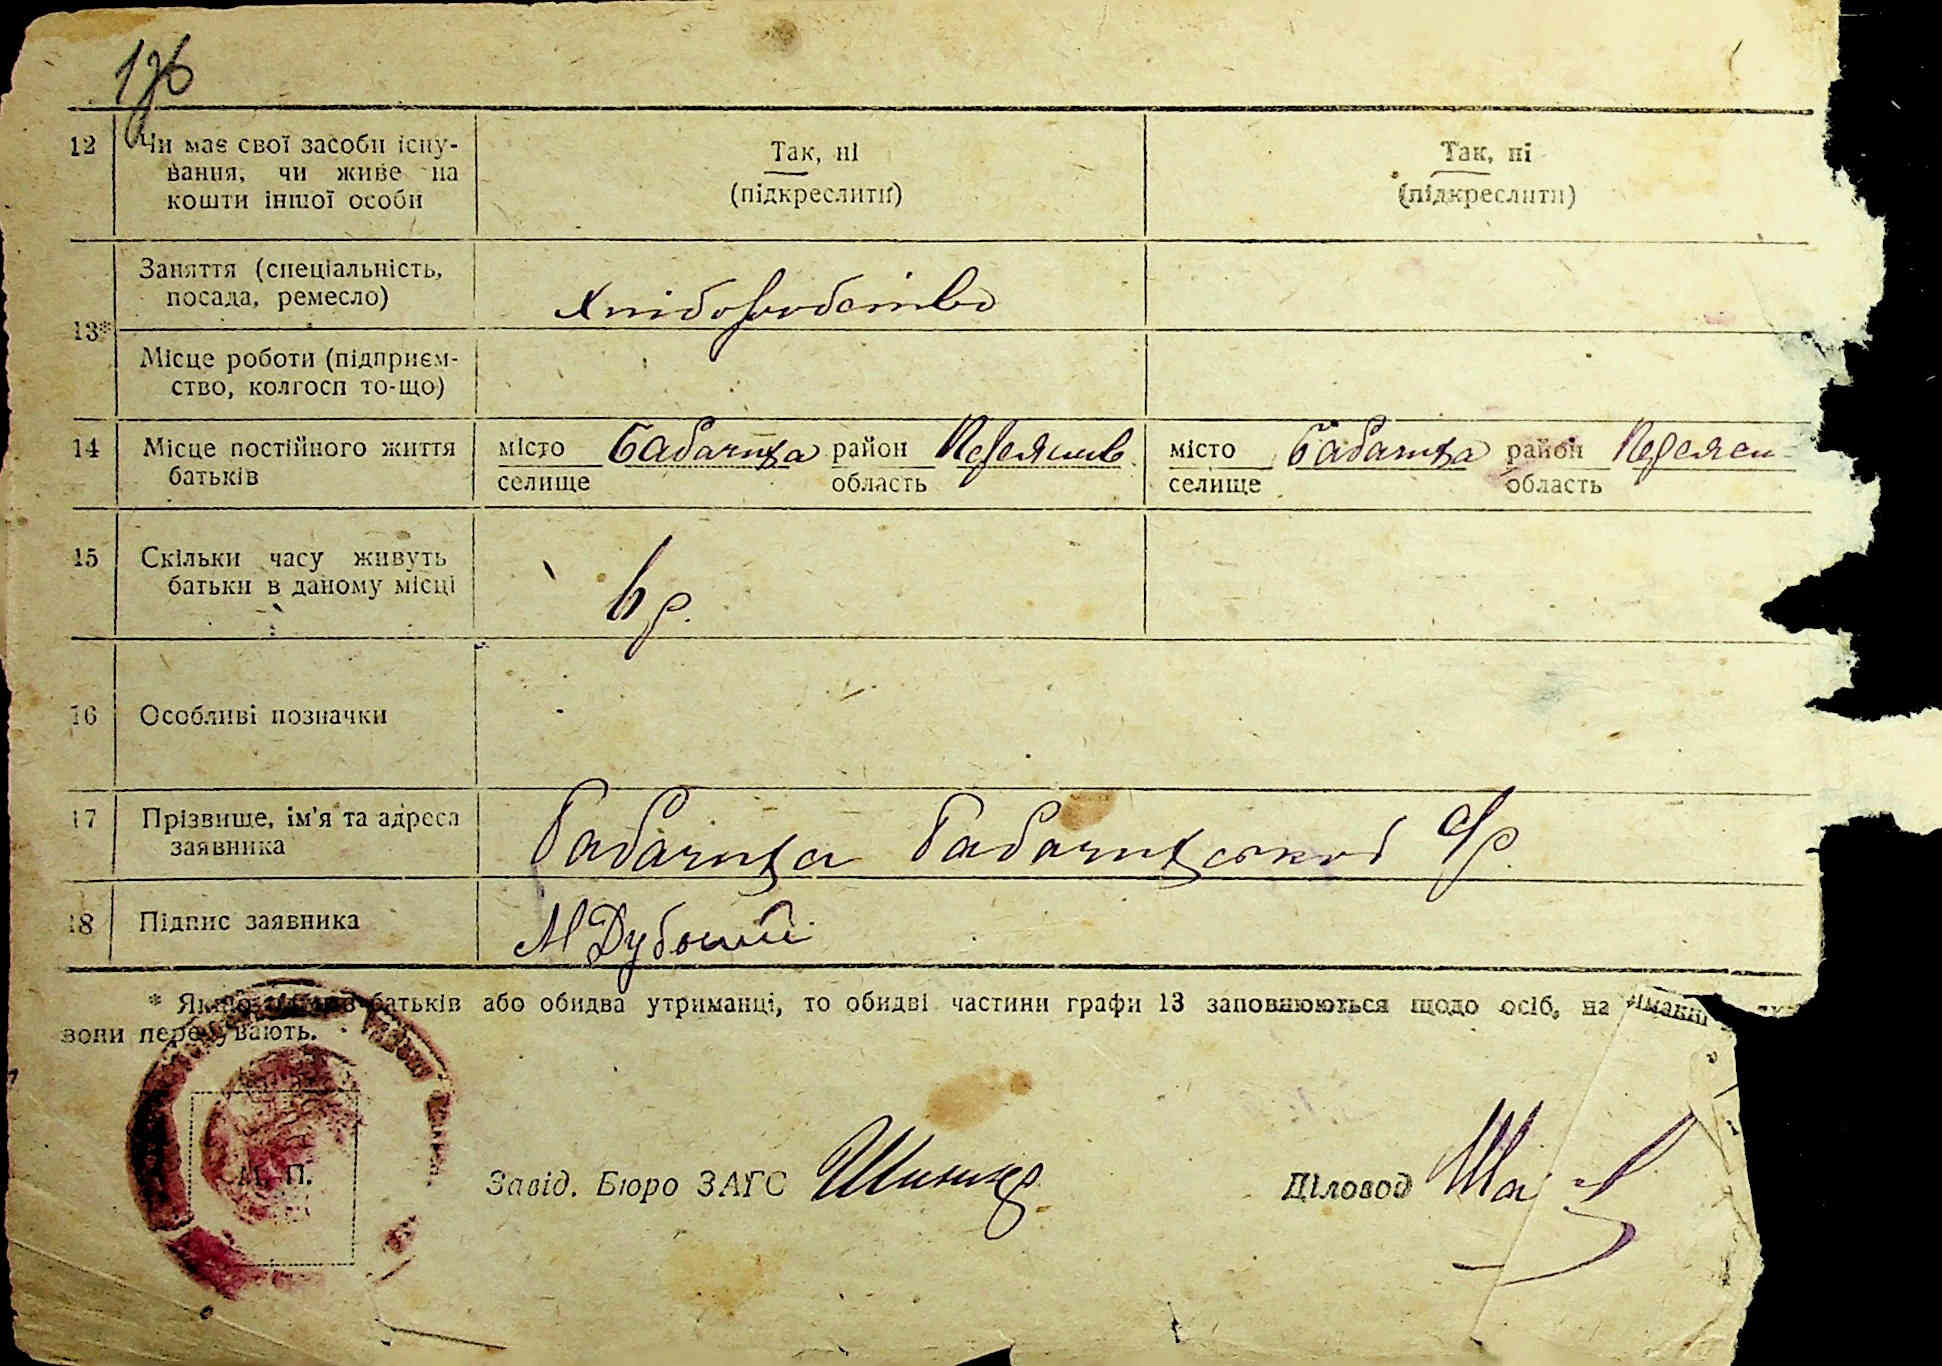 12 Чи має свої засоби існу-
вання, чи живе на
кошти іншої особи
Так, ні
(підкреслити)
Так, ні
(підкреслити)
13*
Заняття (спеціальність,
посада, ремесло)
Хліборобство
Місце роботи (підприєм-
ство, колгосп то-що)
14 Місце постійного життя
батьків
місто Бабачиха район Переяслив
селище область
місто Бабачиха район Переясл-
селище область
15 Скільки часу живуть
батьки в даному місці
16 Особливі позначки
17 Прізвище, ім'я та адреса
заявника
Бабачиха Бабачихської с/р.
18 Підпис заявника
* або обидва утриманці, то обидві частини графи 13 заповнюються щодо осіб, на
вони
М. П.
Завід. Бюро ЗАГС
Діловод